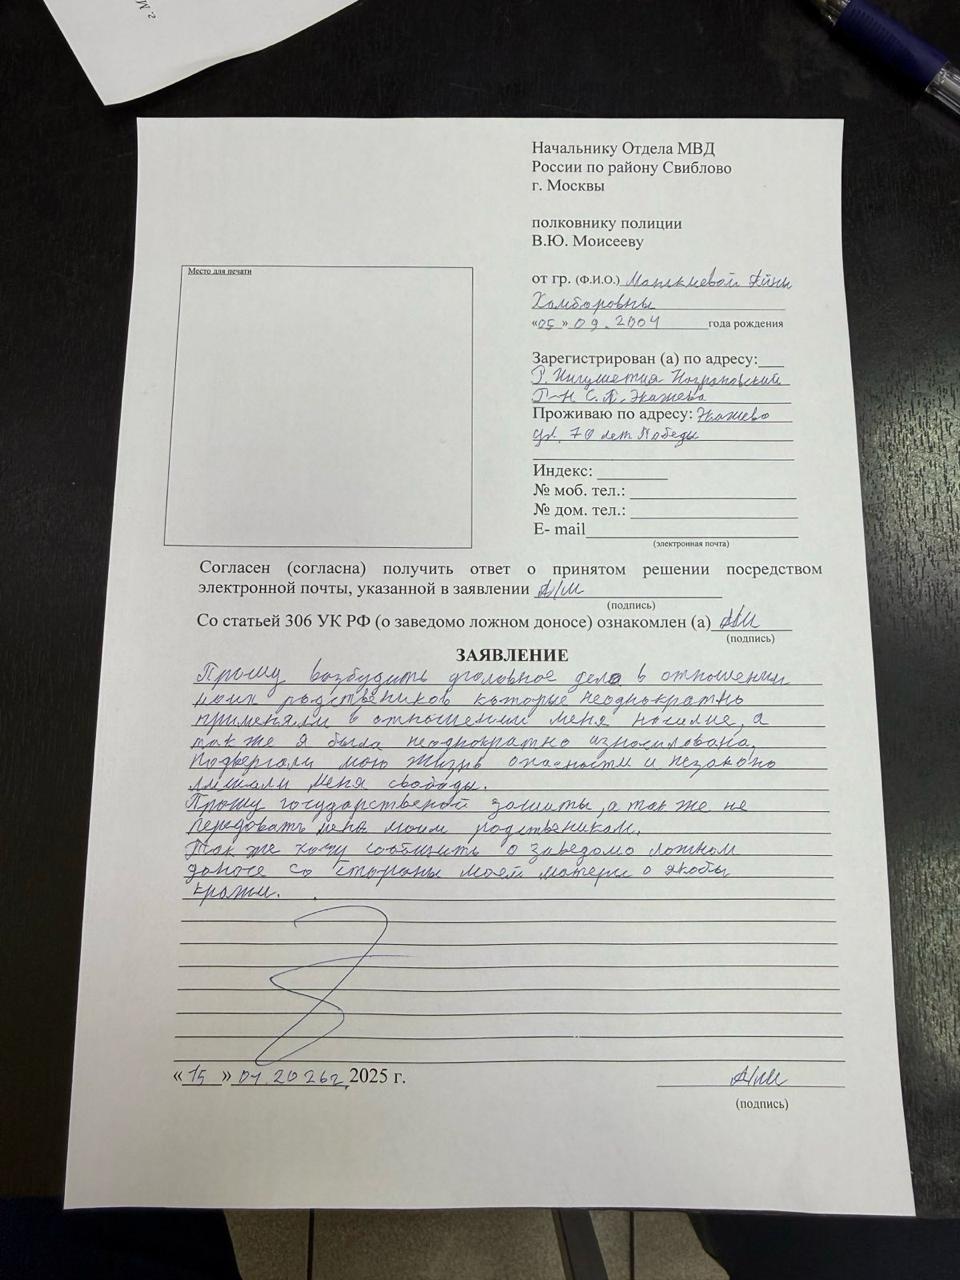 г. М
Начальнику Отдела МВД
России по району Свиблово
г. Москвы
полковнику полиции
В.Ю. Моисееву
Место для печати
от гр. (Ф.И.О.) Манкиевой Айны
Хамборовны
«05» 09.2004 года рождения
Зарегистрирован (а) по адресу:
Р. Ингушетия Назрановский
Р-Н С.П. Экажево
Проживаю по адресу: Экажево
ул. 70 лет Победы
Индекс:
№ моб. тел.:
№ дом. тел.:
E- mail
(электронная почта)
Согласен (согласна) получить ответ о принятом решении посредством
электронной почты, указанной в заявлении А/М
(подпись)
Со статьей 306 УК РФ (о заведомо ложном доносе) ознакомлен (а) А/М
(подпись)
ЗАЯВЛЕНИЕ
Прошу возбудить уголовное дело в отношении
моих родственников которые неоднократно
применяли в отношении меня насилие, а
так же я была неоднократно изнасилована.
Подвергали мою жизнь опасности и незаконо
лишали меня свободы.
Прошу государственой защиты, а так же не
передовать меня моим родственикам.
Так же хочу сообщить о заведомо ложном
доносе со стороны моей матери о якобы
кражи.
«15» 01.2026г, 2025 г.
А/М
(подпись)